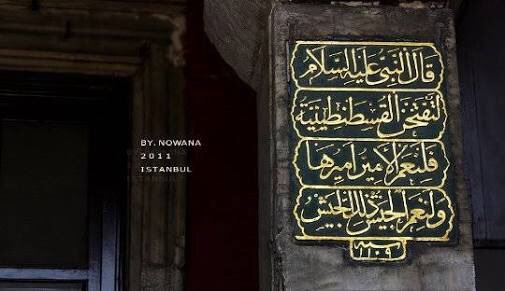 BY. NOWANA
2011
ISTANBUL
قال النبي عليه السلام
لتفتحن القسطنطينية
فلنعم الامير اميرها
ولنعم الجيش ذلك الجيش